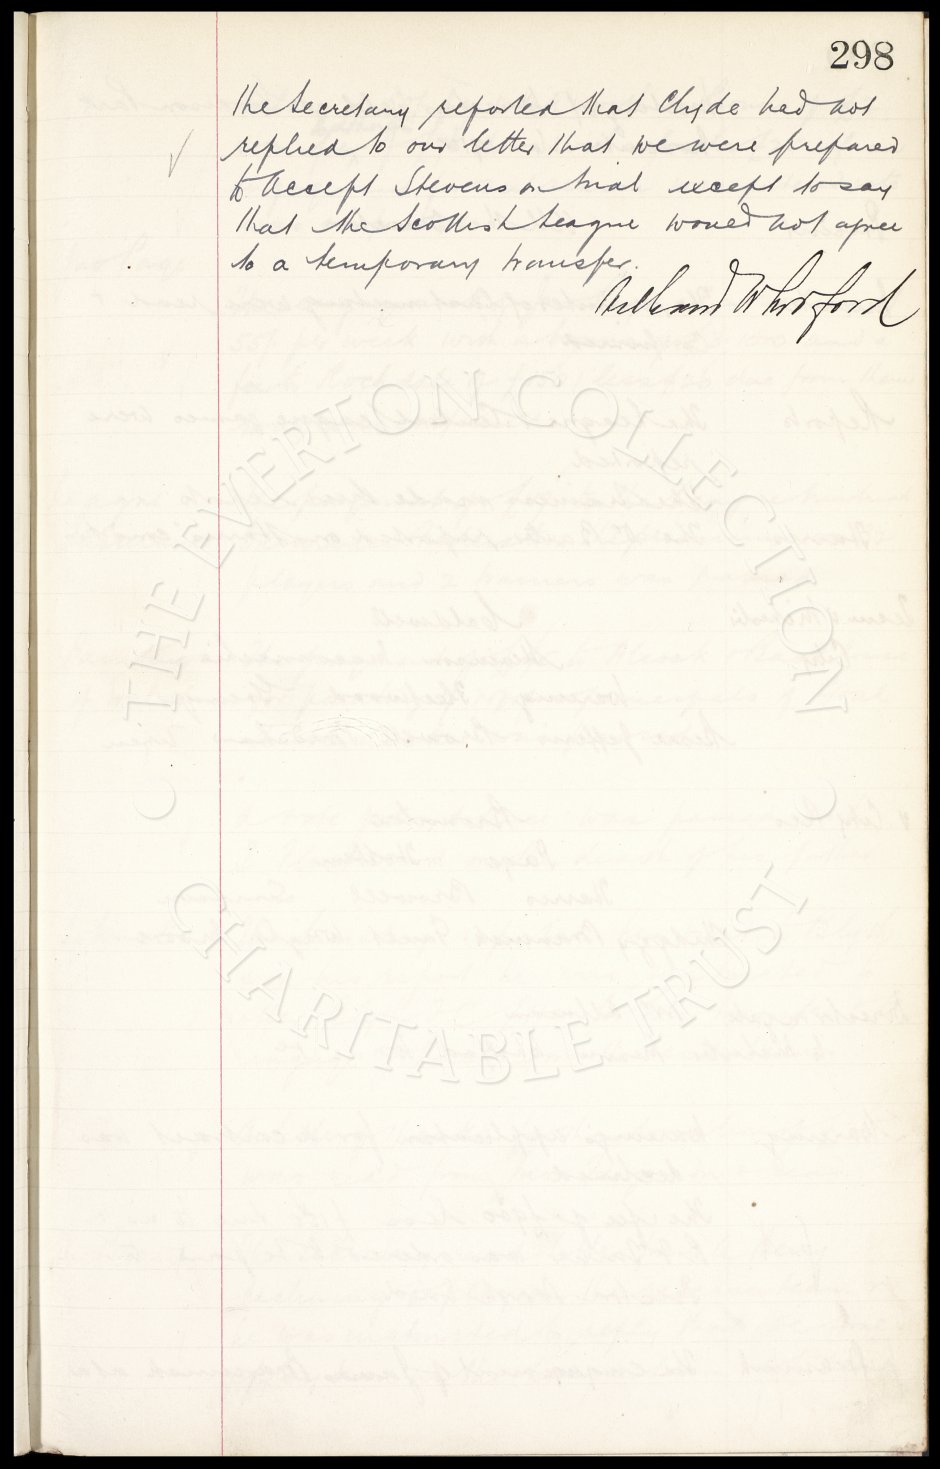 298
The Secretary reported that Clyde had not
replied to our letter that we were prepared
to accept Stevens on trial except to say
that the Scottish League would not agree
to a temporary transfer.
Whitford
THE EVERTON COLLECTION
CHARITABLE TRUST